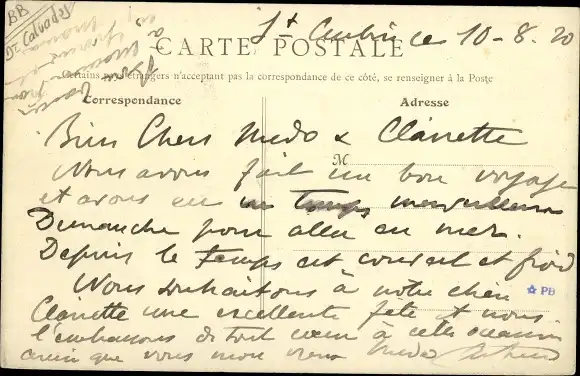 BB
Dt Calvados
St Aubin ce 10-8.20
CARTE POSTALE
Certains pays étrangers n'acceptent pas la correspondance de ce côté, se renseigner à la Poste
Correspondance
Adresse
M
Bien Chers Medo & Clairette
Nous avons fait un bon voyage
et avons eu un temps merveilleux
Dimanche pour aller en mer.
Depuis le temps est couvert et froid
Nous souhaitons à notre chère
PB
Clairette une excellente fête et nous
l'embrassons de tout cœur à cette occasion
ainsi que vous mon vieux Medo